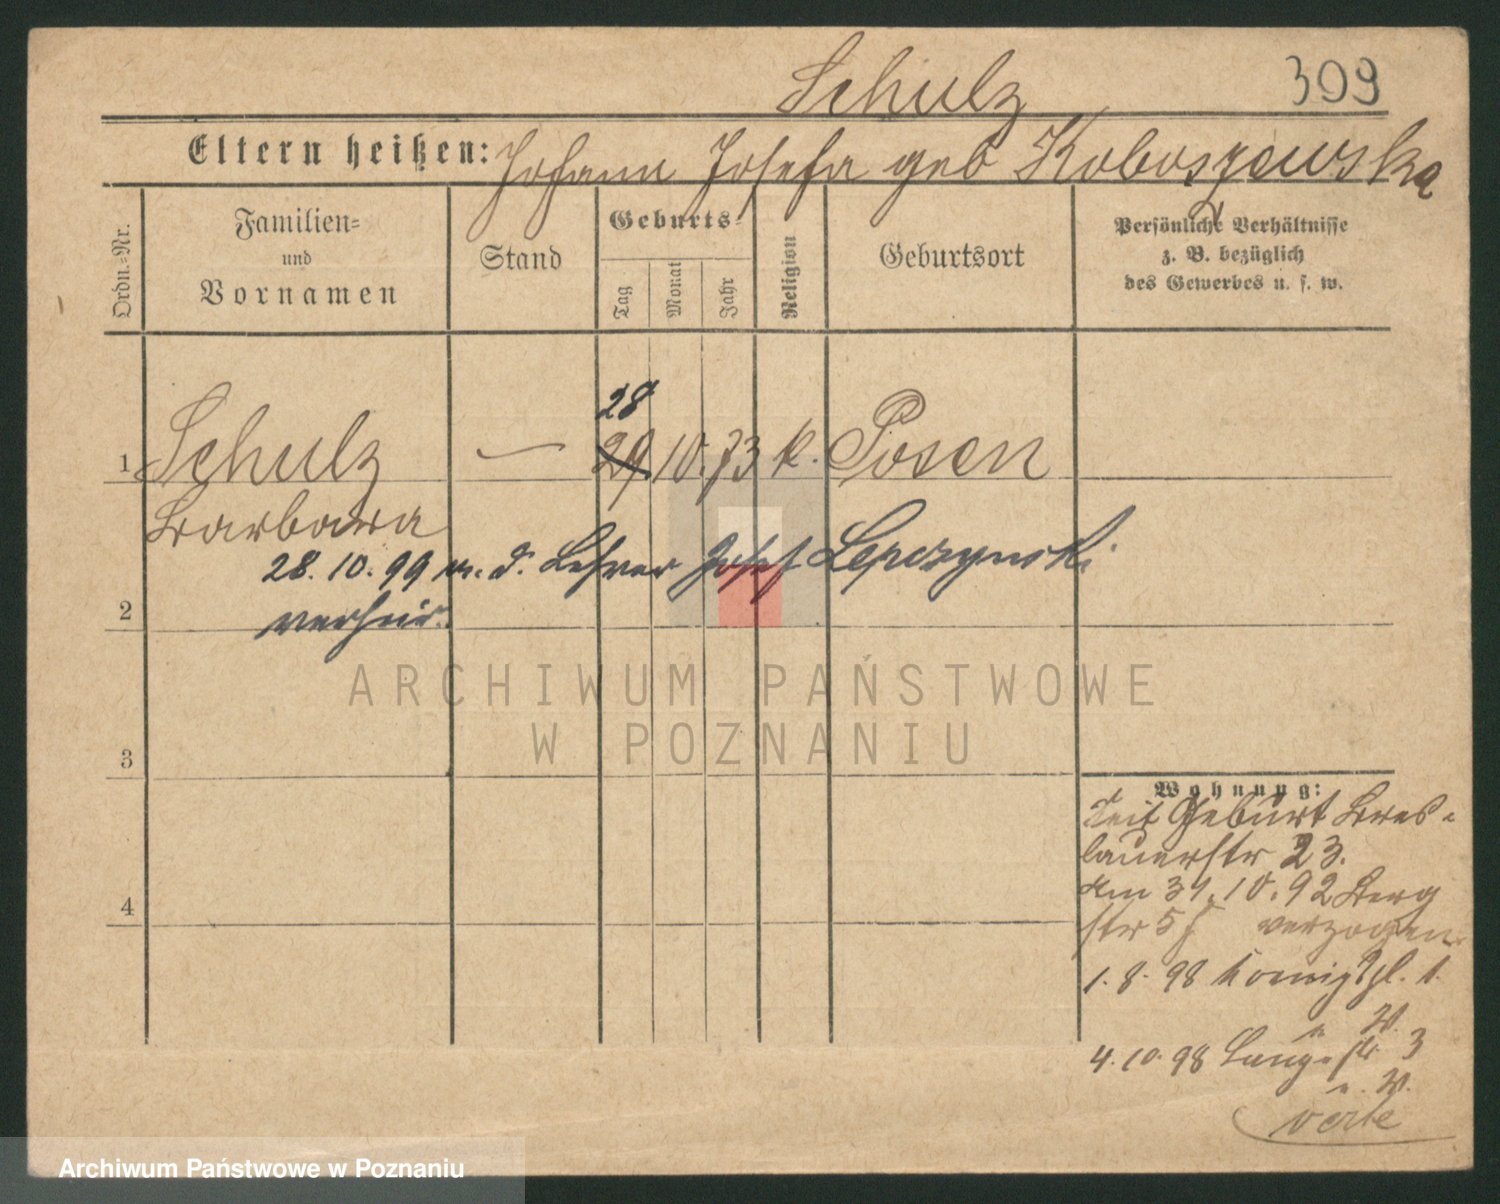 Schulz 309
Eltern heißen: Johann Josefa geb Koboszewska
Ordn.-Nr.
Familien-
und
Vornamen
Stand
Geburts-
Tag
Monat
Jahr
Religion
Geburtsort
Persönliche Verhältnisse
z. B. bezüglich
des Gewerbes u. s. w.
28
1 Schulz — 29 10. 73 k. Posen
Barbara
28. 10. 99 m. d. Lehrer Josef Lepczynski
2 verheir.
3
4
Wohnung:
Seit Geburt Bres-
lauerstr 23.
Am 31.10.92 Berg
str 5 verzogen
1. 8. 98 Koenigspl. 1.
n. W.
4. 10. 98 Langestr 3
n. W.
verte
ARCHIWUM PAŃSTWOWE
W POZNANIU
Archiwum Państwowe w Poznaniu